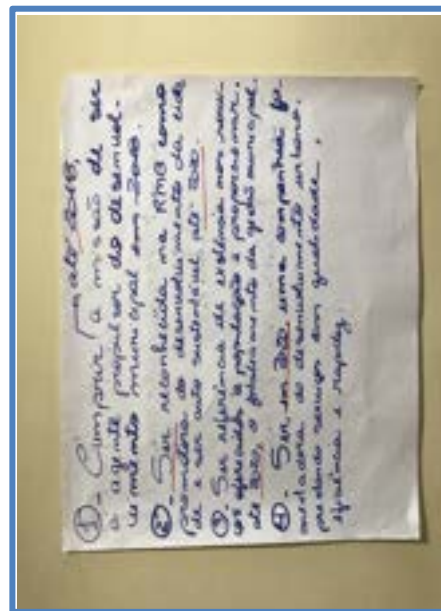 até 2018,
① - Cumprir a missão de ser
o agente propulsor do desenvol-
vimento municipal em 2018.
② - Ser reconhecida na RMB como
promotora do desenvolvimento da cida
de e ser auto sustentável até 2020.
③ Ser referência de excelência nos servi-
ços oferecidos à população e proporcionar,
até 2020, o fortalecimento da gestão municipal.
④ - Ser em 2020 uma companhia fo-
mentadora do desenvolvimento urbano,
prestando serviços com qualidade,
eficiência e rapidez